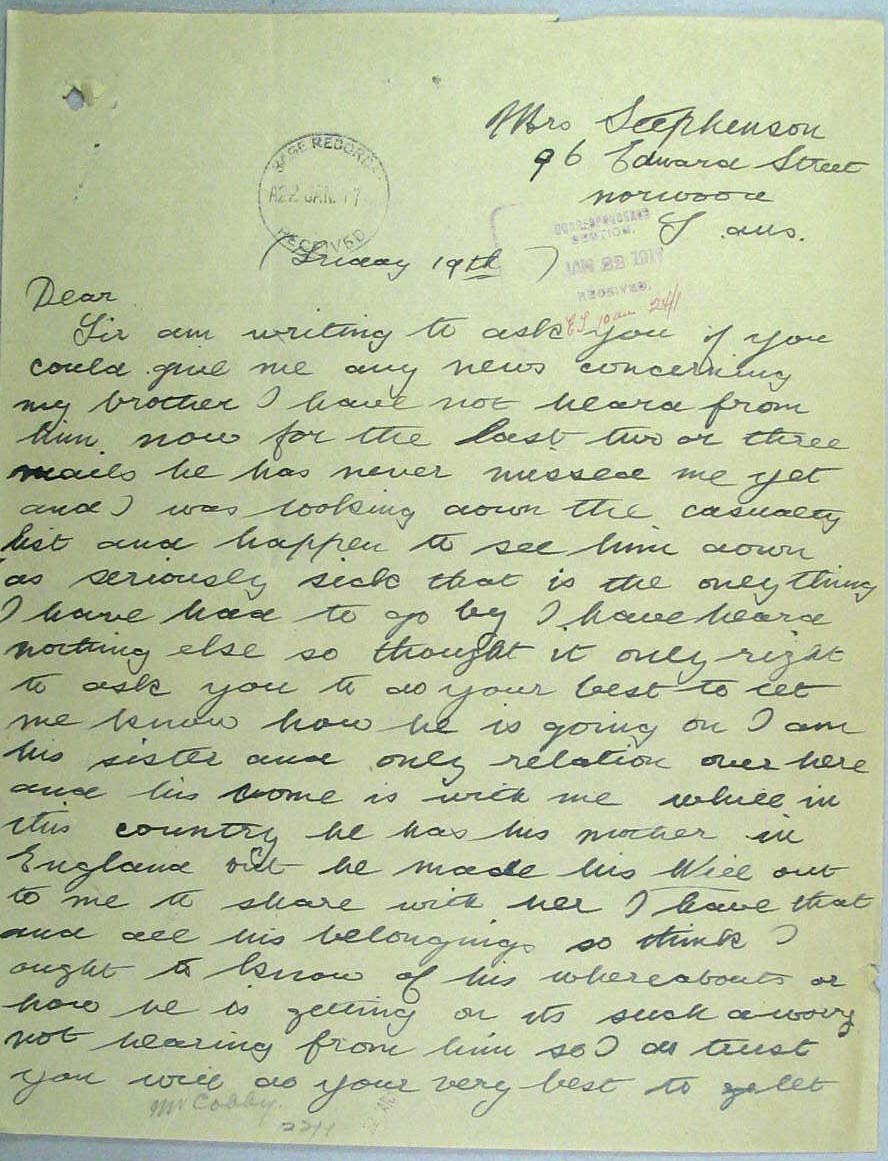 Mrs Stephenson
96 Edward Street
Norwood
S. Aus.
BASE RECORDS
A22 JAN. 17
RECEIVED
JAN 22 1917
RECEIVED
(Friday 19th)
24/1
Dear
Sir am writing to ask you if you
could give me any news concerning
my brother I have not heard from
him now for the last two or three
mails he has never missed me yet
and I was looking down the casualty
list and happen to see him down
as seriously sick that is the only thing
I have had to go by I have heard
nothing else so thought it only right
to ask you to do your best to let
me know how he is going on I am
his sister and only relation over here
and his home is with me while in
this country he has his mother in
England but he made his Will out
to me to share with her I have that
and all his belongings so think I
ought to know of his whereabouts or
how he is getting on its such a worry
not hearing from him so I do trust
you will do your very best to let
Mr Cobby.
22/1